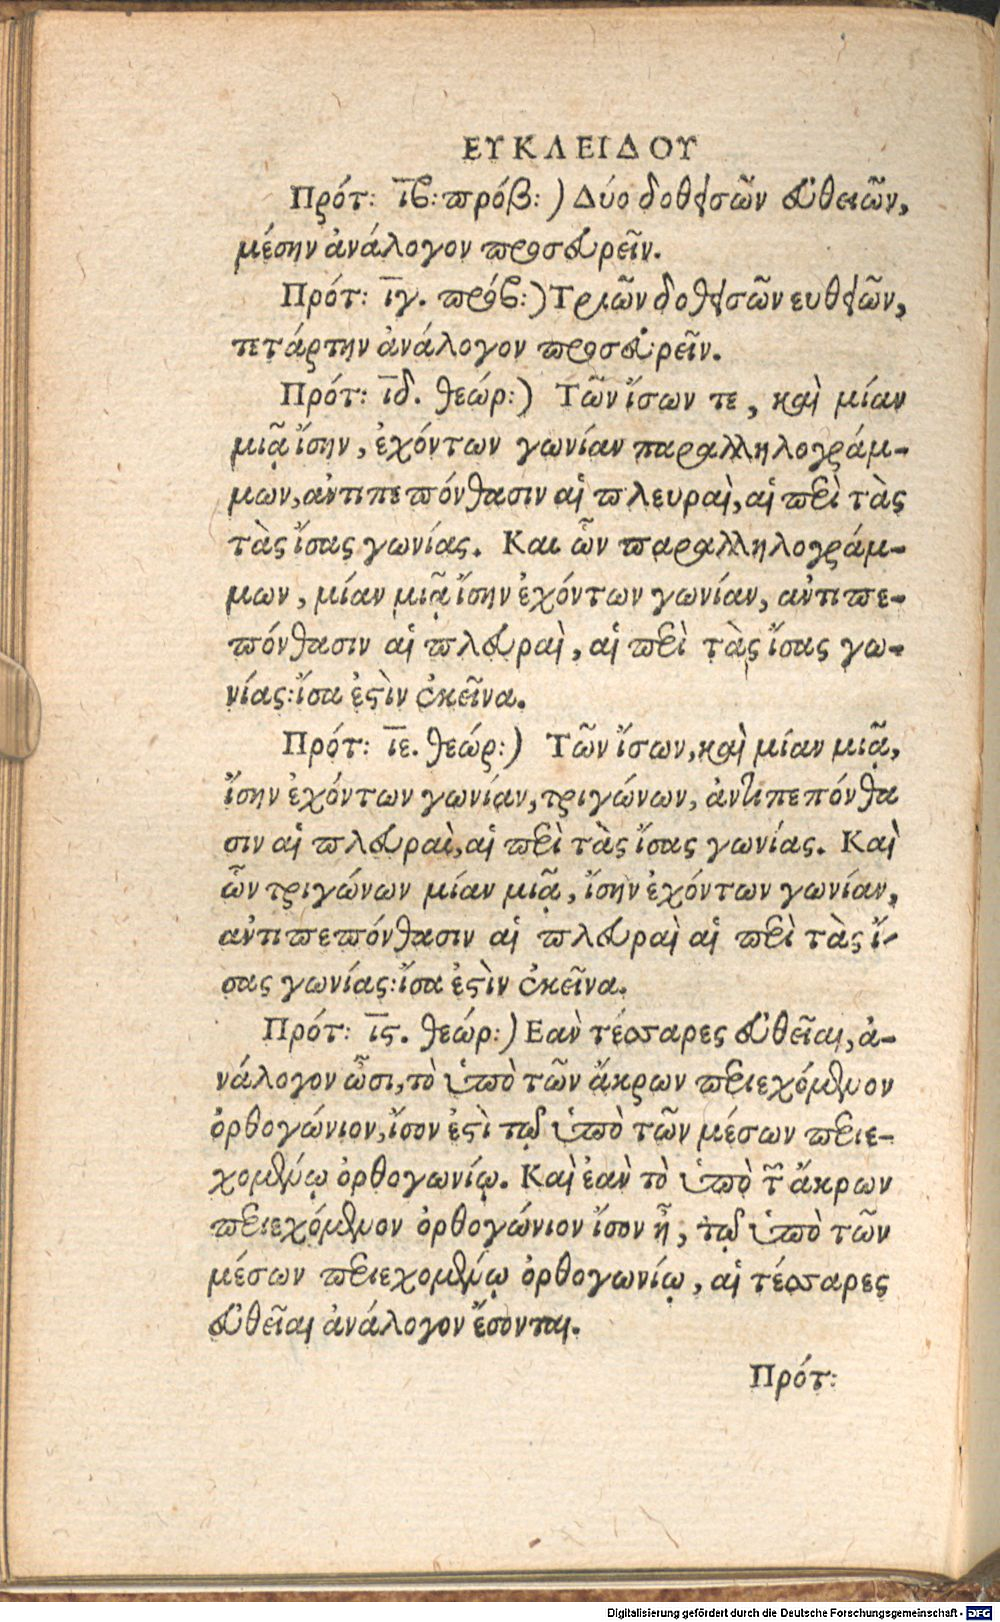 ΕΥΚΛΕΙΔΟΥ
Πρότ: ιβ: πρόβ: ) Δύο δοθεισῶν εὐθειῶν,
μέσην ἀνάλογον προσευρεῖν.
Πρότ: ιγ. πρόβ: ) Τριῶν δοθεισῶν ευθειῶν,
τετάρτην ἀνάλογον προσευρεῖν.
Πρότ: ιδ. θεώρ: ) Τῶν ἴσων τε, καὶ μίαν
μιᾷ ἴσην, ἐχόντων γωνίαν παραλληλογράμ-
μων, ἀντιπεπόνθασιν αἱ πλευραὶ, αἱ περὶ τὰς
τὰς ἴσας γωνίας. Και ὧν παραλληλογράμ-
μων, μίαν μιᾷ ἴσην ἐχόντων γωνίαν, ἀντιπε-
πόνθασιν αἱ πλευραὶ, αἱ περὶ τὰς ἴσας γω-
νίας: ἴσα ἐστὶν ἐκεῖνα.
Πρότ: ιε. θεώρ: ) Τῶν ἴσων, καὶ μίαν μιᾷ,
ἴσην ἐχόντων γωνίαν, τριγώνων, ἀντιπεπόνθα
σιν αἱ πλευραὶ, αἱ περὶ τὰς ἴσας γωνίας. Καὶ
ὧν τριγώνων μίαν μιᾷ, ἴσην ἐχόντων γωνίαν,
ἀντιπεπόνθασιν αἱ πλευραὶ αἱ περὶ τὰς ἴ-
σας γωνίας: ἴσα ἐστὶν ἐκεῖνα.
Πρότ: ις. θεώρ: ) Εαν τέσσαρες εὐθεῖαι, ἀ-
νάλογον ὦσι, τὸ ὑπὸ τῶν ἄκρων περιεχόμενον
ὀρθογώνιον, ἴσον ἐστὶ τῷ ὑπὸ τῶν μέσων περιε-
χομένῳ ὀρθογωνίῳ. Καὶ ἐὰν τὸ ὑπὸ τῶν ἄκρων
περιεχόμενον ὀρθογώνιον ἴσον ᾖ, τῷ ὑπὸ τῶν
μέσων περιεχομένῳ ὀρθογωνίῳ, αἱ τέσσαρες
εὐθεῖαι ἀνάλογον ἔσονται.
Πρότ:
Digitalisierung gefördert durch die Deutsche Forschungsgemeinschaft - DFG